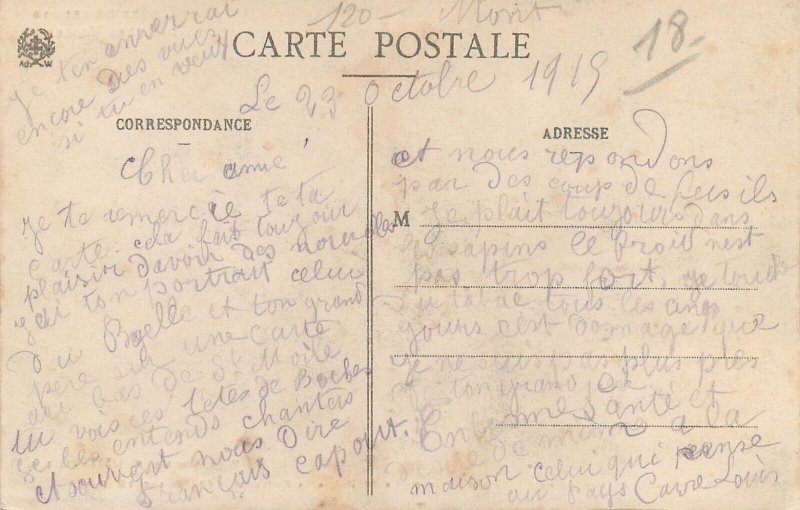 120- Mont
18.
Je t'en enverrai
encore des vues
si tu en veux
CARTE POSTALE
Le 23 Octobre 1915
CORRESPONDANCE
ADRESSE
M
Cher amie
Je te remercie te ta
Carte cela fait toujour
plaisir d'avoir des nouvelles
J'ai ton portrait celui
Du Boelle et ton grand
père sur une Carte
au bas de St
tu vois ces têtes de Boches
Je les entends chanters
et souvent nous Dire
francais capout.
et nous repondons
par des coup de fusils
Je plait toujours Dans
les sapins le froid n'est
pas trop fort, je touche
Du tabac tous les
jours c'est domage que
Je ne suis pas plus près
de ton grand
Enbonne santé et
de meme a la
maison celui qui pense
au pays Cavre Louis